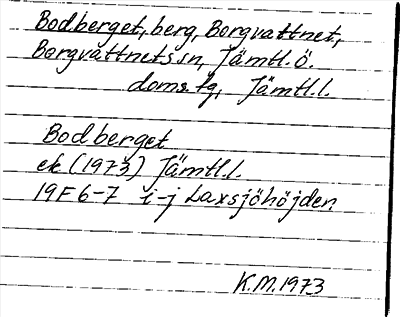 Bodberget, berg, Borgvattnet,
Borgvattnets sn, Jämtl. ö.
doms. tg, Jämtl. l.
Bodberget
ek (1973) Jämtl. l.
19F 6-7 i-j Laxsjöhöjden
K.M. 1973